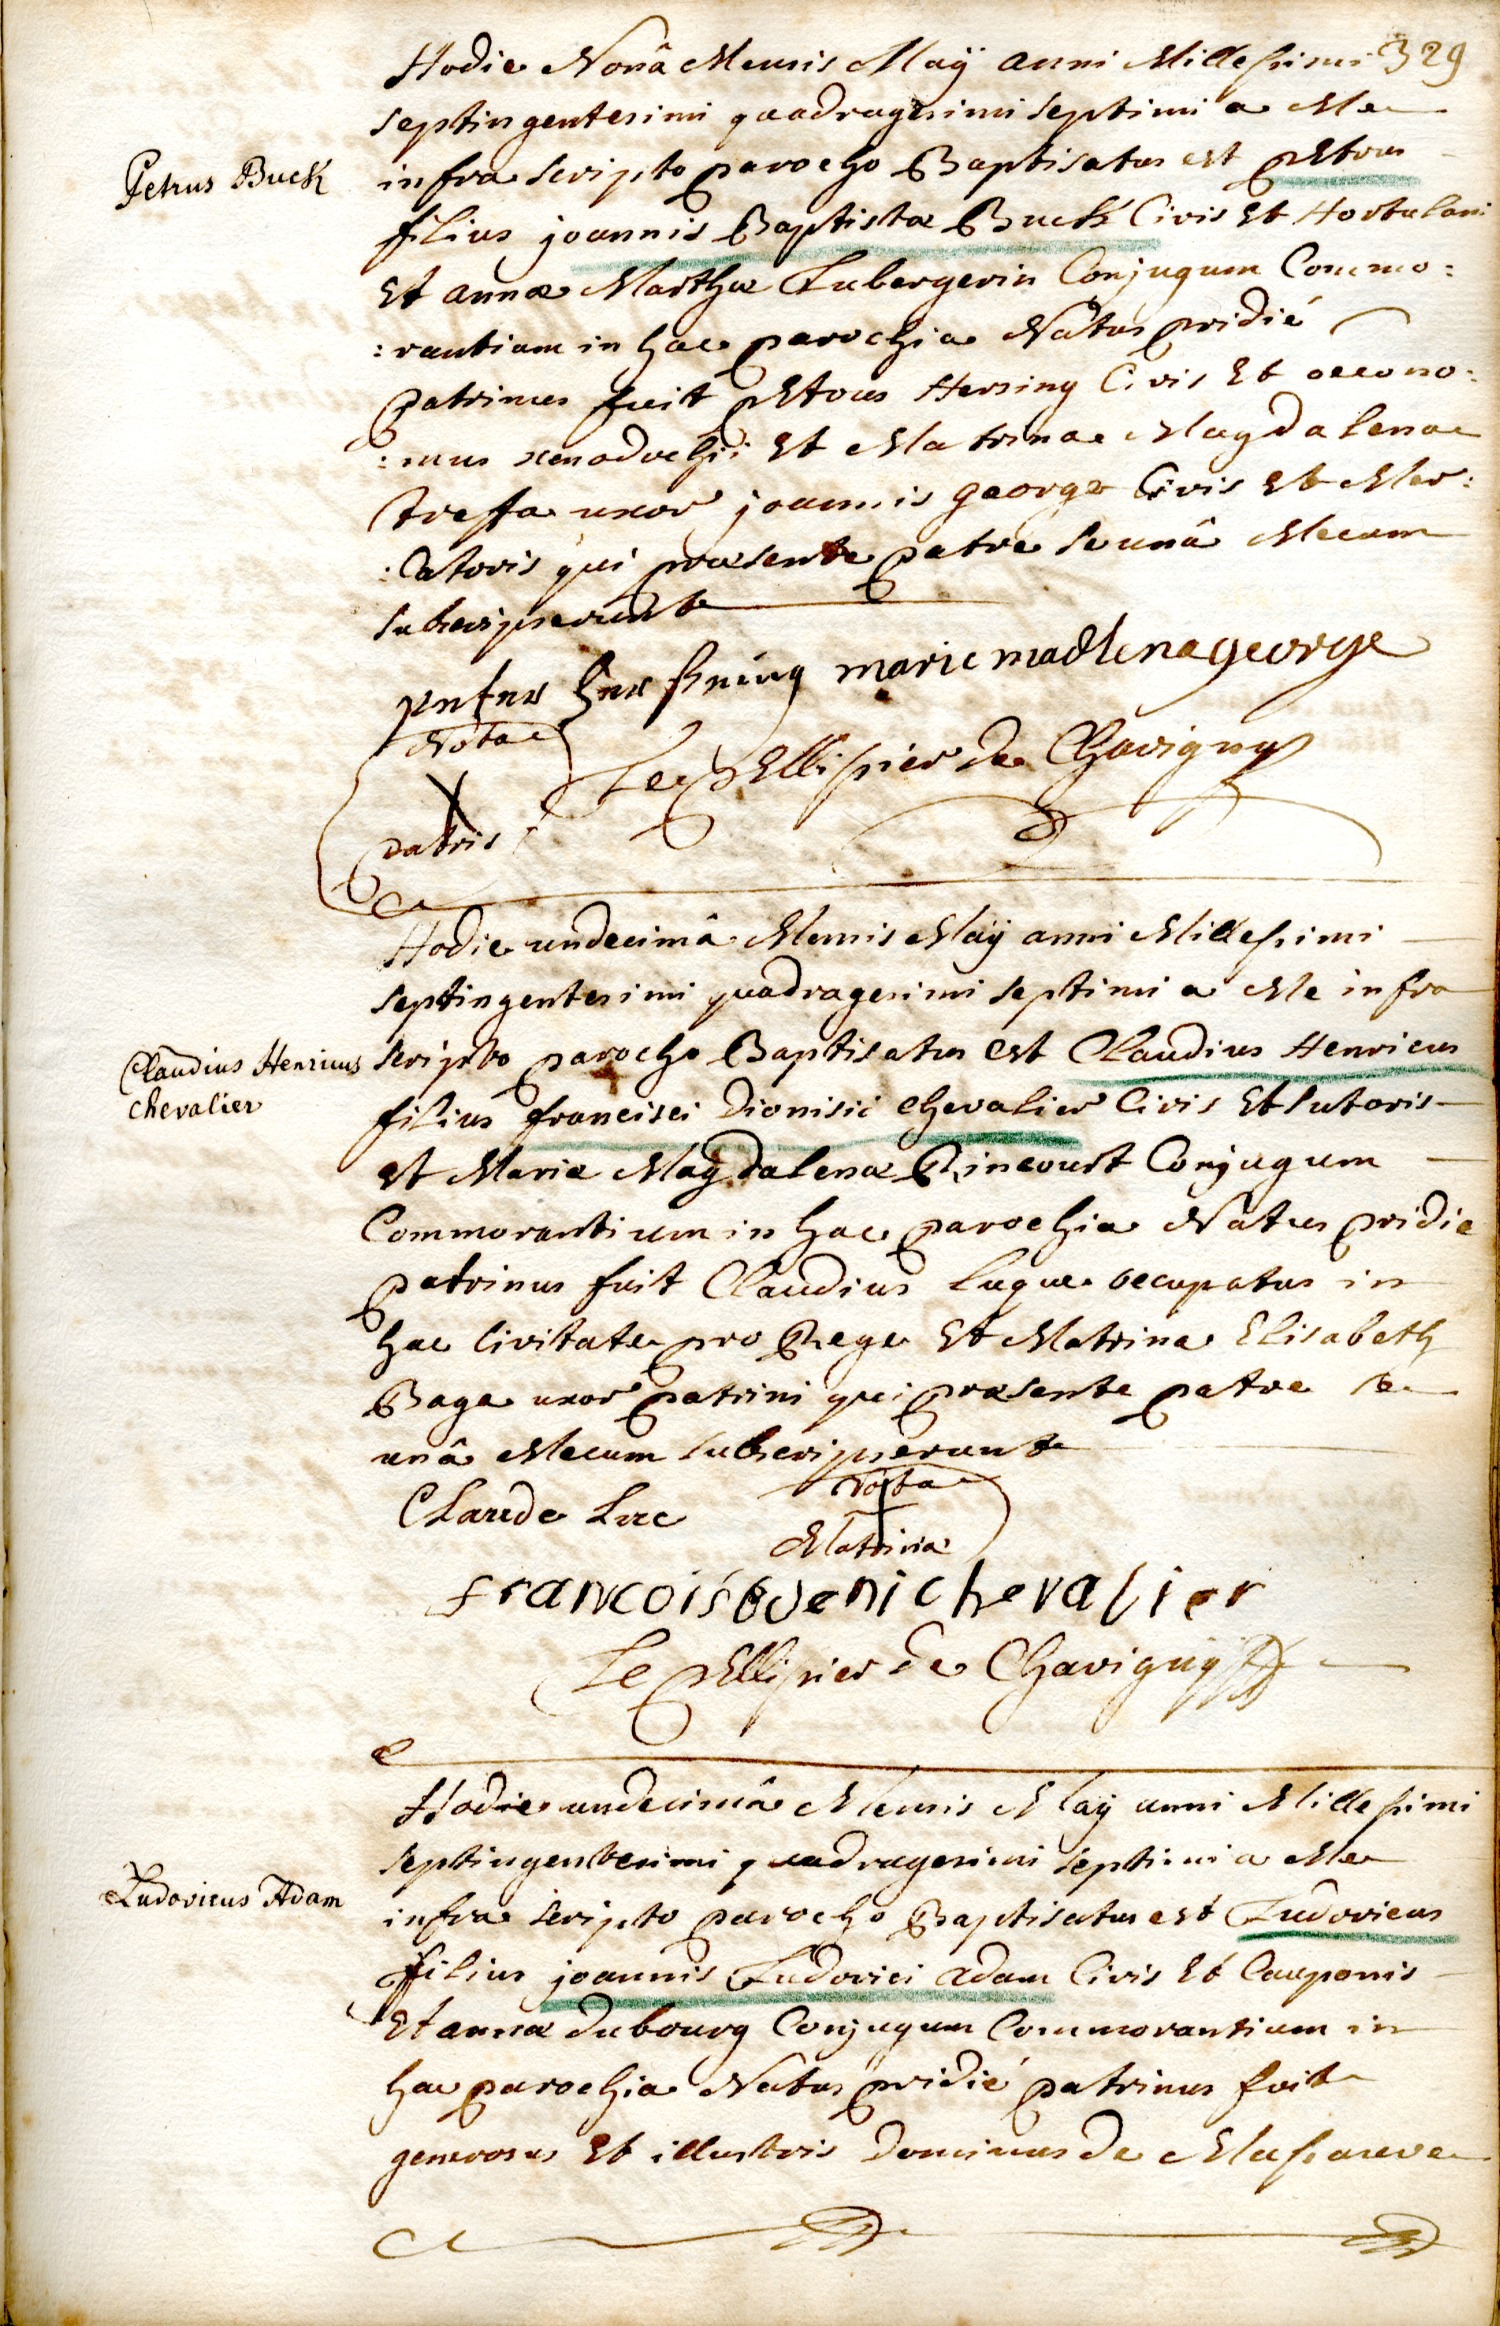 329
Hodie Nonâ Mensis Maÿ anni Millesimi
septingentesimi quadragesimi septimi a Me
Petrus Buck
infra scripto parocho Baptisatus est petrus
filius joannis Baptistæ Buck Civis Et Hortulani
Et annæ Marthæ Lubergerin Conjugum Commo:
:rantium in hac parochia Natus pridié
patrinus fuit petrus Hersing Civis Et oecono:
:mus xenodochii Et Matrina Magdalena
treffa uxor joannis george Civis Et Mer:
:Catoris qui præsente patre se unâ Mecum
subscripserunt
peter Hersseing marie madlena george
Nota
Le pellissier de Chavigny
X
patris
Hodie undecimâ Mensis Maÿ anni Millesimi
septingentesimi quadragesimi septimi a Me infra
Claudius Henricus
chevalier
scripto parocho Baptisatus est Claudius Henricus
filius francisci Dionisii chevalier Civis Et sutoris
et Mariæ Magdalenæ Rincourt Conjugum
Commorantium in hac parochia Natus pridie
patrinus fuit Claudius Luque occupatus in
hac Civitate pro Rege Et Matrina Elisabeth
Bage uxor patrini qui præsente patre se
unâ Mecum subscripserunt
Nota
Claude Luc
Matrina
francois deni chevalier
Le pellissier de Chavigny
Hodie undecimâ Mensis Maÿ anni Millesimi
septingentesimi quadragesimi septimi a Me
Ludovicus Adam
infra scripto parocho Baptisatus est Ludovicus
filius joannis Ludovici adam Civis Et Cauponis
Et annæ dubourg Conjugum Commorantium in
hac parochia Natus pridié patrinus fuit
generosus Et illustris dominus de